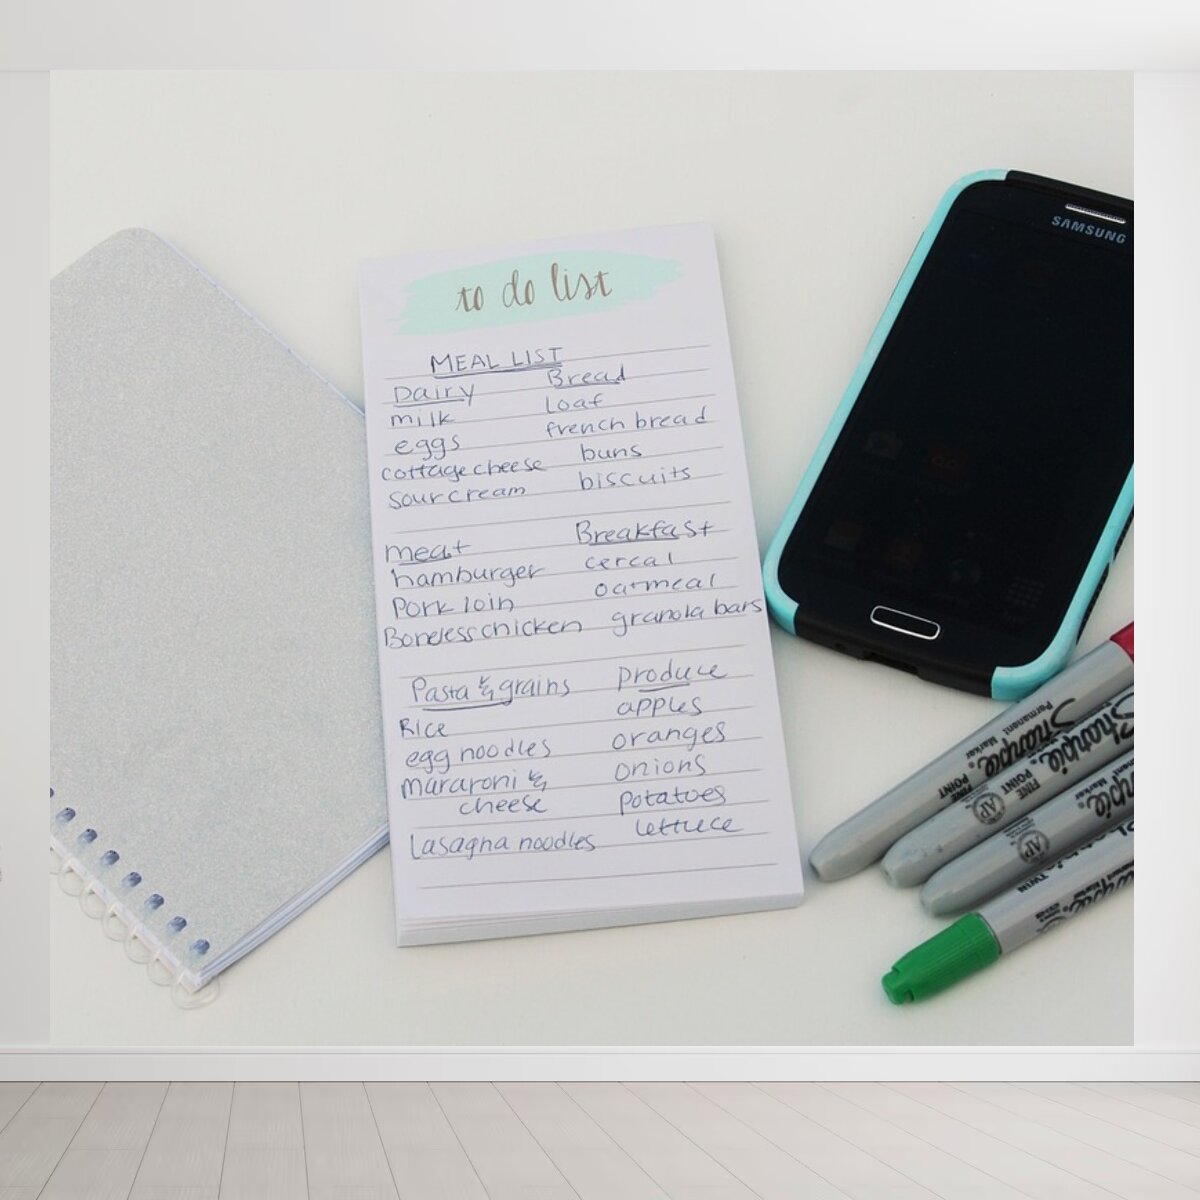 to do list
MEAL LIST
Dairy
milk
eggs
cottage cheese
sour cream
Bread
loaf
french bread
buns
biscuits
meat
hamburger
Pork loin
Boneless chicken
Breakfast
cereal
oatmeal
granola bars
Pasta & grains
Rice
egg noodles
macaroni &
cheese
lasagna noodles
produce
apples
oranges
onions
potatoes
lettuce
SAMSUNG
Sharpie
Permanent Marker
FINE POINT
AP
Sharpie
FINE POINT
AP
TWIN